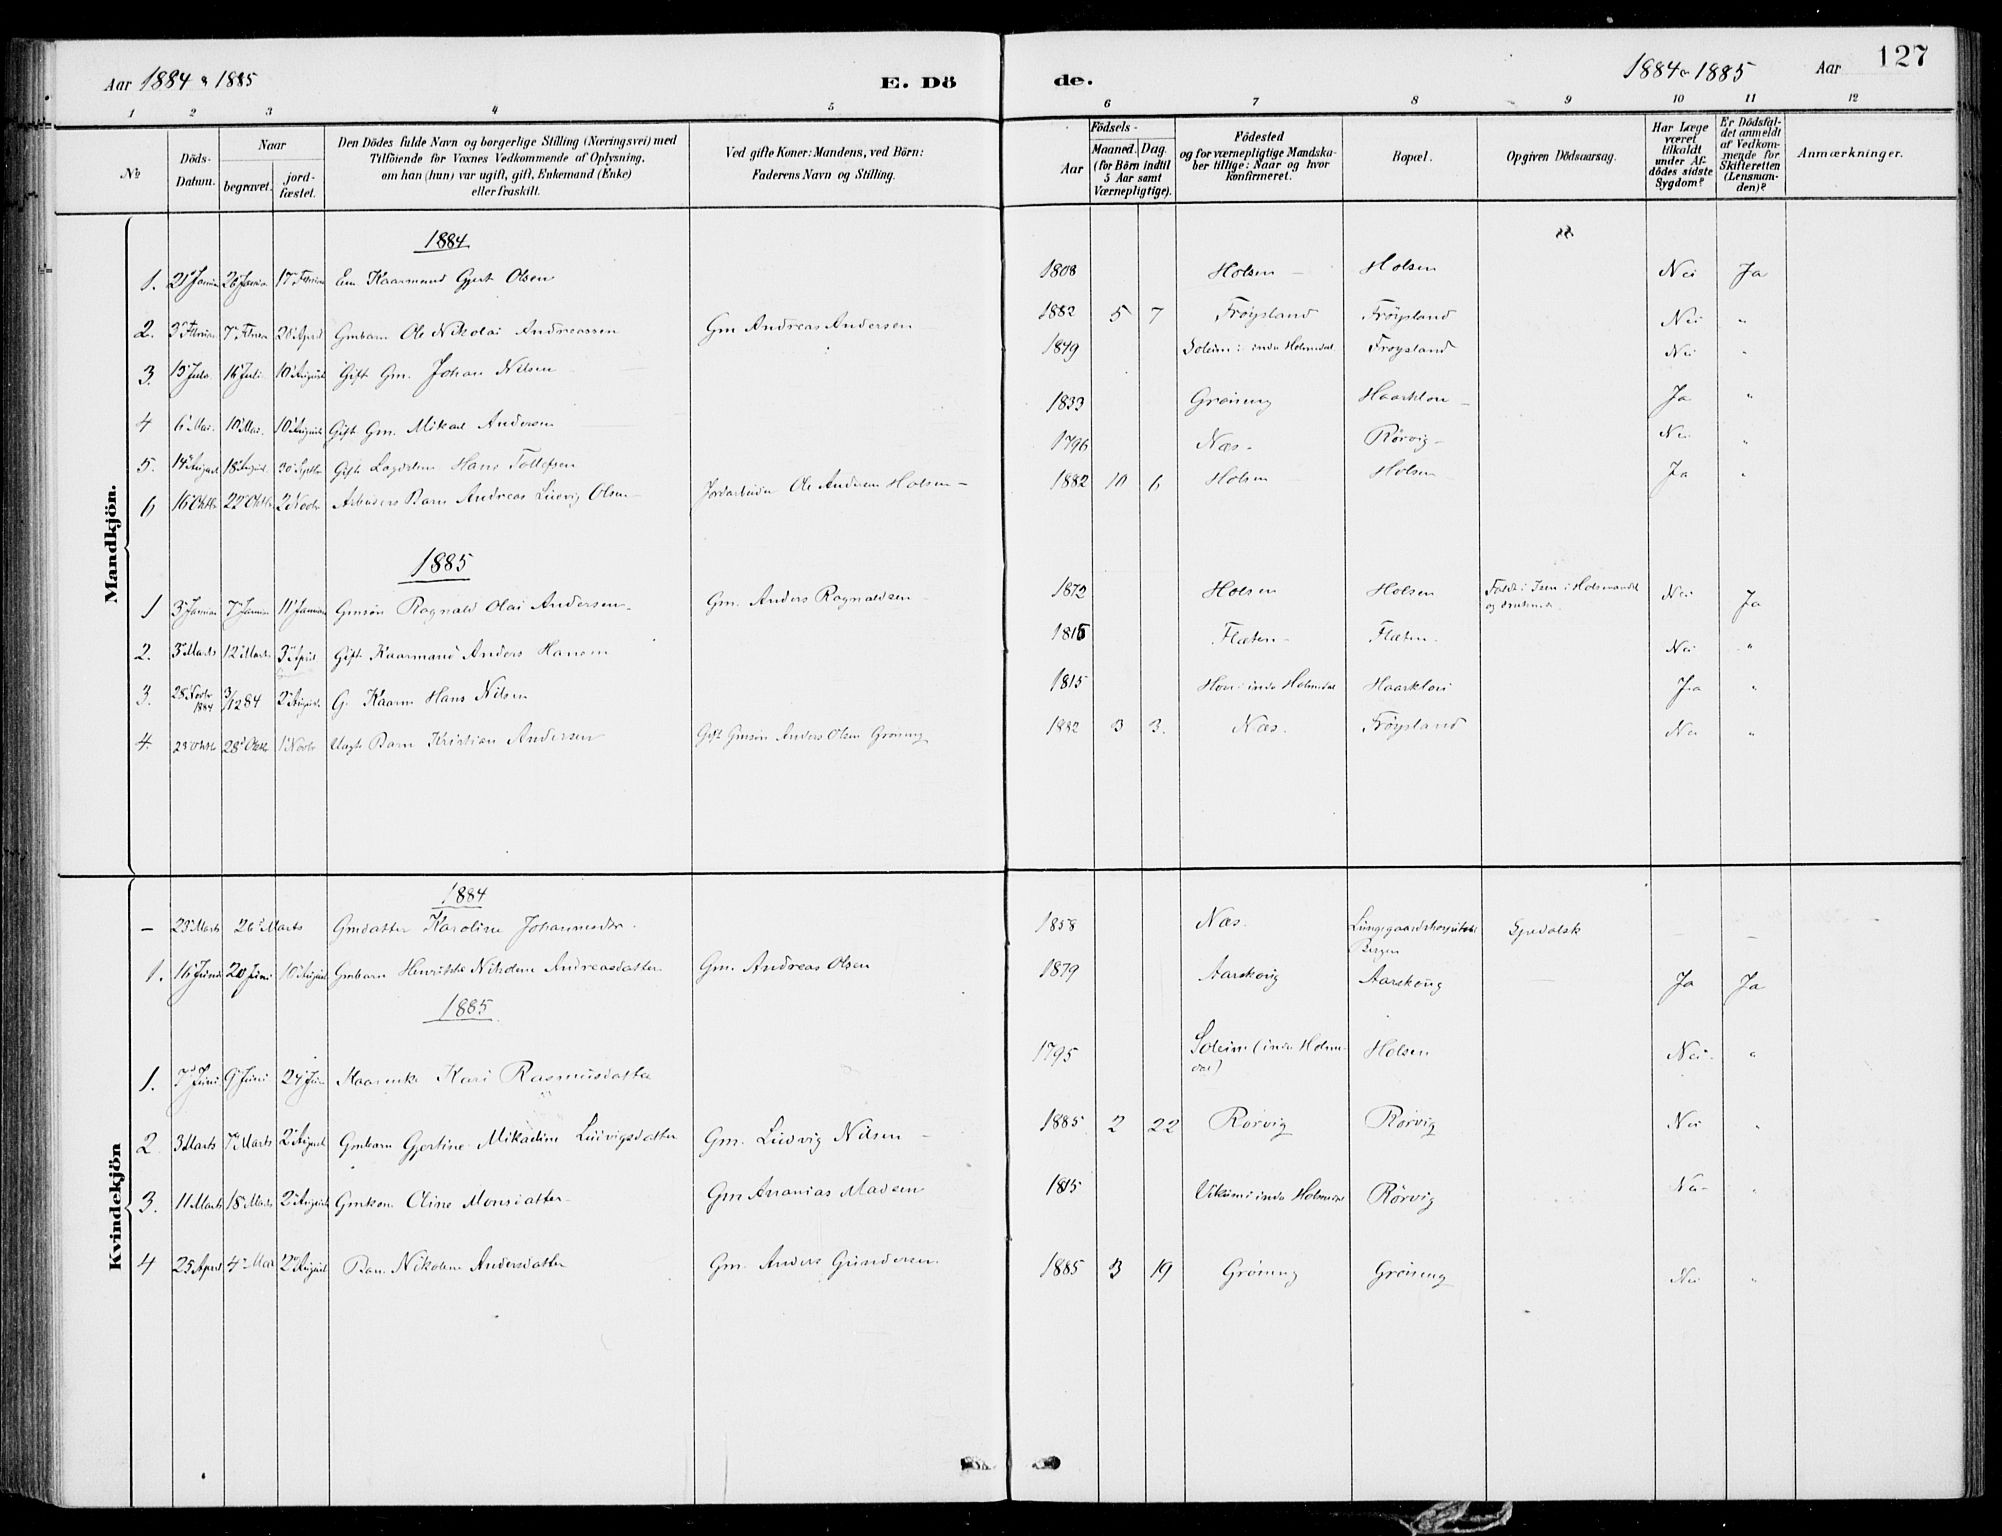 Aar 1884 & 1885 E. Dö
de. 1884 & 1885 Aar 127
1 2 3 4 5 6 7 8 9 10 11 12
№
Döds-Datum.
Naar
begravet.
jord-fæstet.
Den Dödes fulde Navn og borgerlige Stilling (Næringsvei) med
Tilföiende for Voxnes Vedkommende af Oplysning,
om han (hun) var ugift, gift, Enkemand (Enke)
eller fraskilt.
Ved gifte Koner: Mandens, ved Börn:
Faderens Navn og Stilling.
Födsels-
Aar
Maaned. Dag.
(for Börn indtil
5 Aar samt
Værnepligtige).
Födested
og for værnepligtige Mandska-
ber tillige: Naar og hvor
konfirmeret.
Bopæl.
Opgiven Dödsaarsag.
Har Læge
været
tilkaldt
under Af-
dödes sidste
Sygdom?
Er Dödsfal-
det anmeldt
af Vedkom-
mende for
Skifteretten
(Lensman-
den)?
Anmærkninger.
Mandkjön.
1884
1. 21 Januar 26 Januar 17 Februar Em. Kaarmand Gjert Olsen 1808 Holsen Holsen Nei Ja
2. 3 Februar 7 Februar 20 April Gmbarn Ole Nikolai Andreassen Gm Andreas Andersen 1882 5 7 Fröysland Fröysland Nei "
3. 13 Juli 16 Juli 10 August Gift Gm. Johan Nilsen 1849 Soleim i indre Holmedal Fröysland Nei "
4 6 Mai 10 Mai 10 August Gift Gm. Mikael Andersen 1833 Gröning Haarklau Ja "
5. 14 August 18 August 30 Septbr Gift Lægdslem Hans Tollefsen 1796 Næs Rörvig Nei "
6 16 Oktbr 22 Oktbr 2 Novbr Arbeiders Barn Andreas Ludvig Olsen Ole Andersen Holsen 1882 10 6 Holsen Holsen Ja "
1885
1 3 Januar 7 Januar 11 Januar Gmsön Ragnald Olai Andersen Gm. Anders Ragnaldsen 1872 Holsen Holsen Faldt i Isen i Holsevandet
og druknede. Nei Ja
2. 3 Marts 12 Marts 3 April Gift Kaarmand Anders Hansen 1816 Flæten Flæten Nei "
3. 28 Novbr
1884 3/12 84 2 August G. Kaarm Hans Nilsen 1815 i indre Holmedal Ja "
4 23 Oktbr 28 Oktbr 1 Novbr Uægte Barn Kristian Andersen Gift Gmsön Anders Olsen Gröning 1882 3 3. Næs. Fröysland Nei "
Kvindekjön
1884
– 23 Marts 26 Marts Gmdatter Karoline Johannesdtr. 1858 Næs. Lungegaardshospitalet
Bergen Spedalsk – –
1. 16 Juni 20 Juni 10 August Gmbarn Henrikke Nikoline Andreasdatter Gm. Andreas Olsen 1879 Aarskoug Aarskoug Ja Ja
1885
1. 7 Juni 9 Juni 24 Juni Kaarenke Kari Rasmusdatter 1795 Soleim (indre Holme-
dal) Holsen Nei "
2 3 Marts 7 Marts 2 August Gmbarn Gjertine Mikaline Ludvigsdatter Gm. Ludvig Nilsen 1885 2 22 Rörvig Rörvig Nei "
3. 11 Marts 18 Marts 2 August Gmkone Oline Monsdatter Gm Ananias Madsen 1815 i indre Holmedal Rörvig Nei "
4 25 April 4 Mai 2 August Barn Nikoline Andersdatter Gm. Anders Gundersen 1885 3 19 Gröning Gröning Nei "